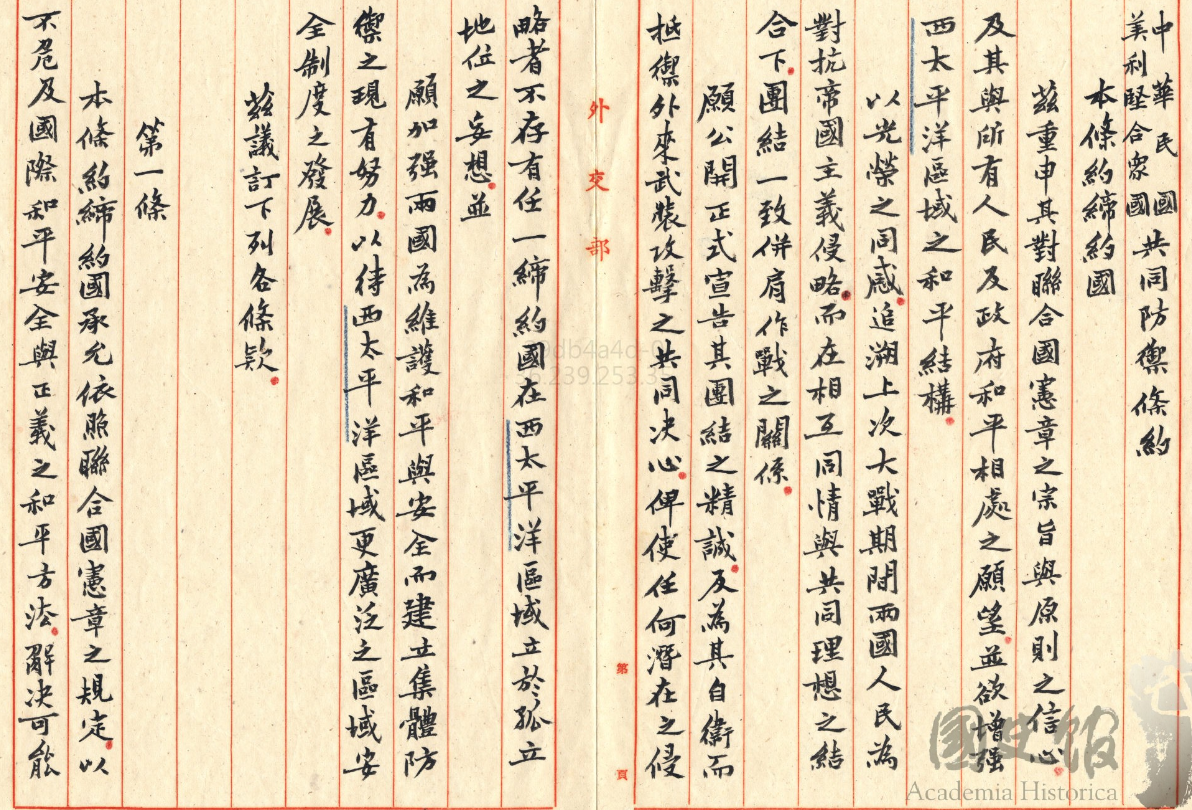 中華民國
美利堅合眾國共同防禦條約
本條約締約國
茲重申其對聯合國憲章之宗旨與原則之信心
及其與所有人民及政府和平相處之願望。並欲增强
西太平洋區域之和平結構。
以光榮之同感。追溯上次大戰期間兩國人民為
對抗帝國主義侵略。而在相互同情與共同理想之結
合下。團結一致併肩作戰之關係。
願公開正式宣告其團結之精誠。及為其自衛而
抵禦外來武裝攻擊之共同决心。俾使任何潛在之侵
外交部
第 頁
略者不存有任一締約國在西太平洋區域立於孤立
地位之妄想。並
願加强兩國為維護和平與安全而建立集體防
禦之現有努力。以待西太平洋區域更廣泛之區域安
全制度之發展。
茲議訂下列各條款。
第一條
本條約締約國承允依照聯合國憲章之規定。以
不危及國際和平安全與正義之和平方法。解决可能
國史館
Academia Historica